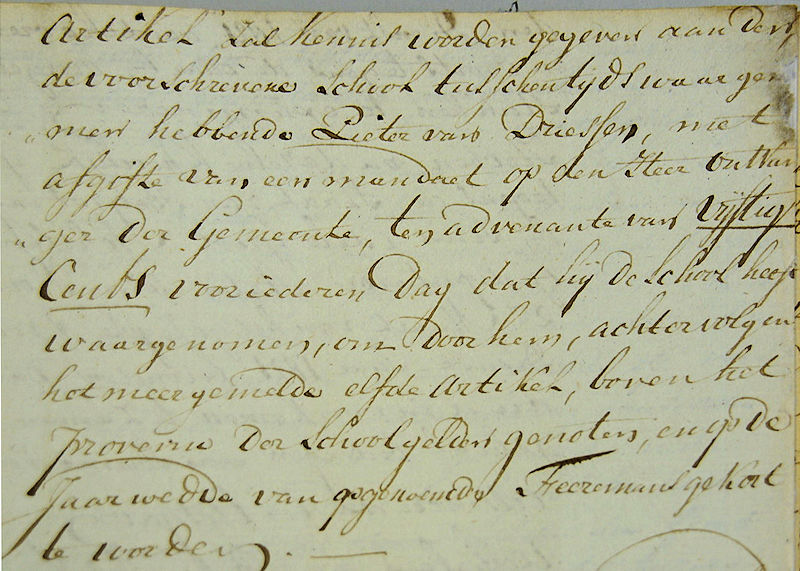 Artikel zal kennis worden gegeven aan den
de voorschrevene School tusschentyds waargen
„men hebbende Pieter van Driessen, met
afgifte van een mandaet op den Heer ontvan
„ger der Gemeente, ten advenante van Vijftig
Cents voor iederen Dag dat hij de School heeft
waargenomen, om door hem, achtervolgens
het meergemelde elfde Artikel, boven het
provenu der Schoolgelden genoten, en op de
Jaarwedde van opgenoemde Heeremans gekort
te worden. —